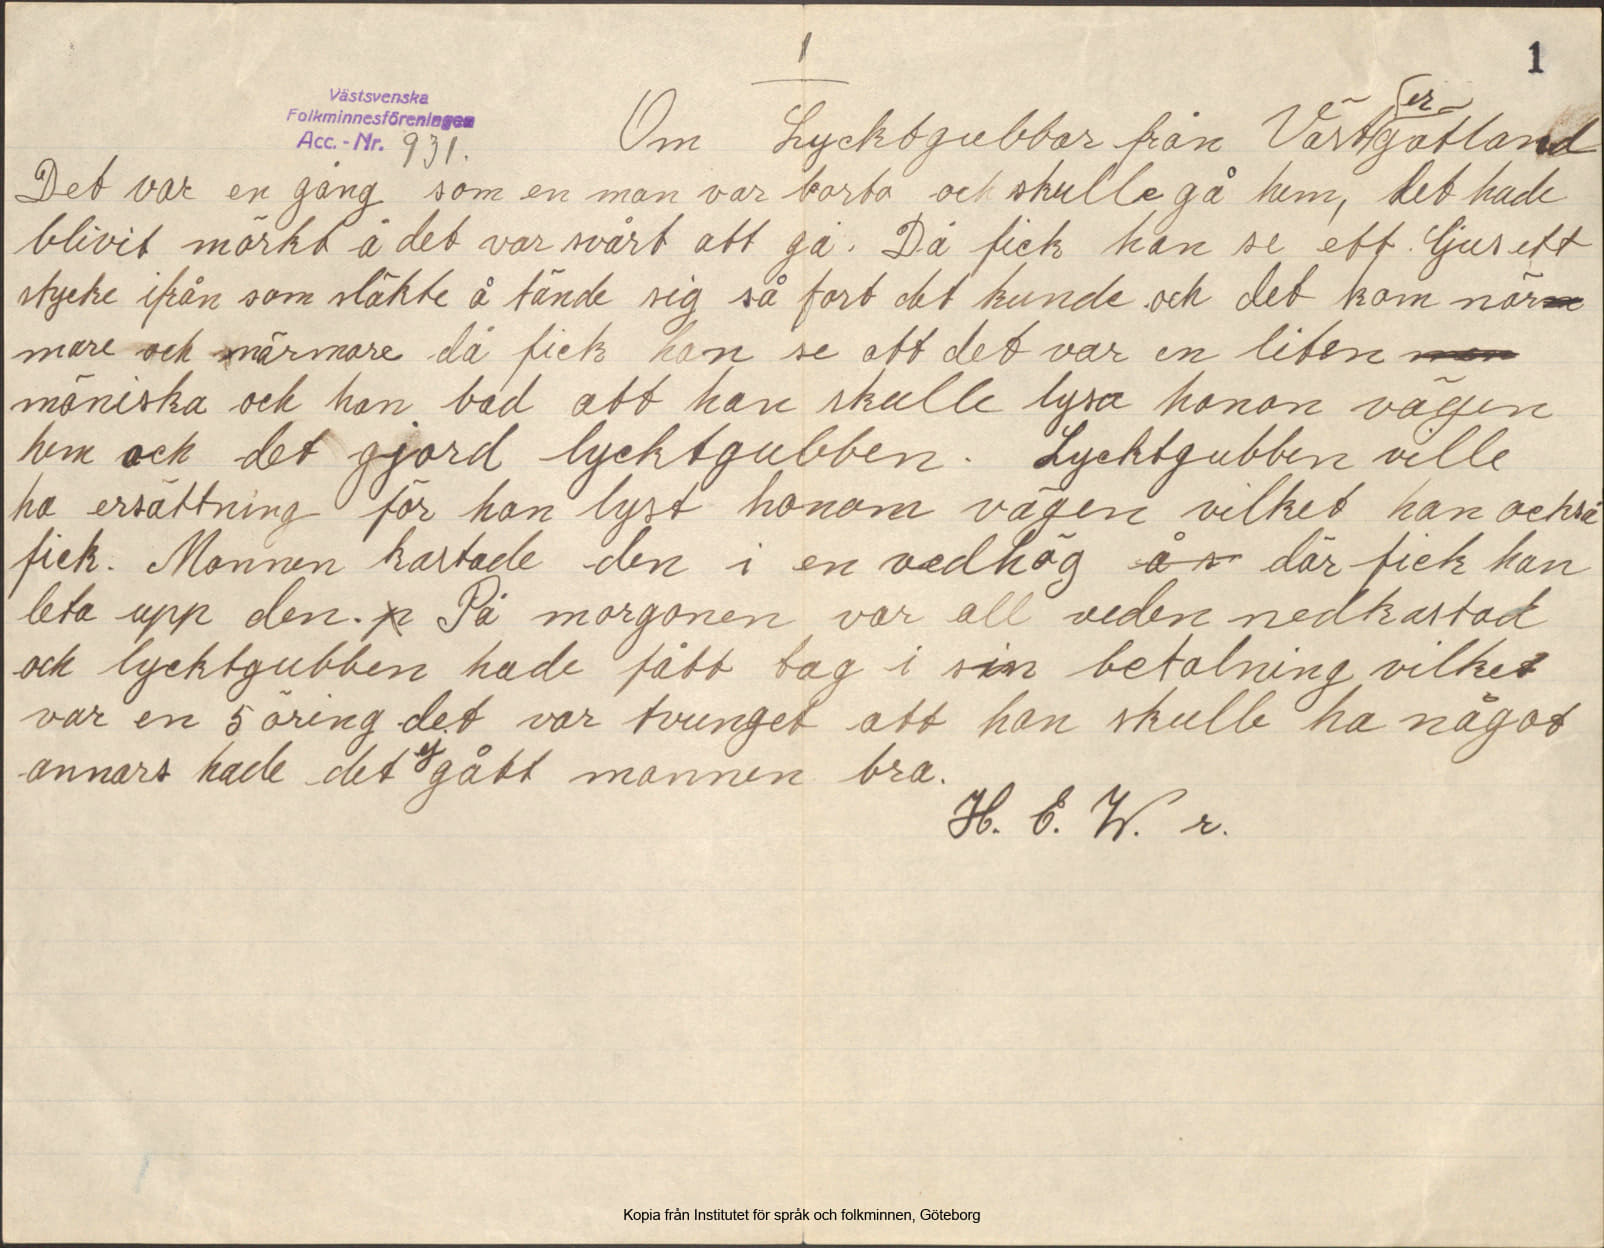 1
1
Västsvenska
Folkminnesföreningen
Acc. - Nr. 931.
er
Om Lycktgubbar från Västgötland
Det var en gång som en man var borta och skulle gå hem, det hade
blivit mörkt å det var svårt att gå. Då fick han se ett ljus ett
stycke ifrån som släkte å tände sig så fort det kunde och det kom när
mare och närmare då fick han se att det var en liten man
mäniska och han bad att han skulle lysa honon vägen
hem och det gjord lycktgubben. Lycktgubben ville
ha ersättning för han lyst honom vägen vilket han också
fick. Mannen kastade den i en vedhög å s där fick han
leta upp den. p På morgonen var all veden nedkastad
och lycktgubben hade fått tag i sin betalning vilket
var en 5 öring det var tvunget att han skulle ha något
annars hade det ej gått mannen bra.
H. E. W. r.
Kopia från Institutet för språk och folkminnen, Göteborg